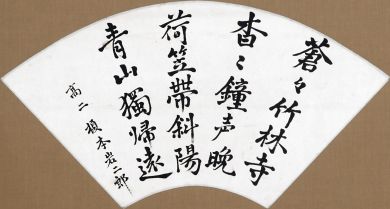 蒼々竹林寺
杳々鐘声晩
荷笠帶斜陽
青山獨帰遠
高二 本岩二郎